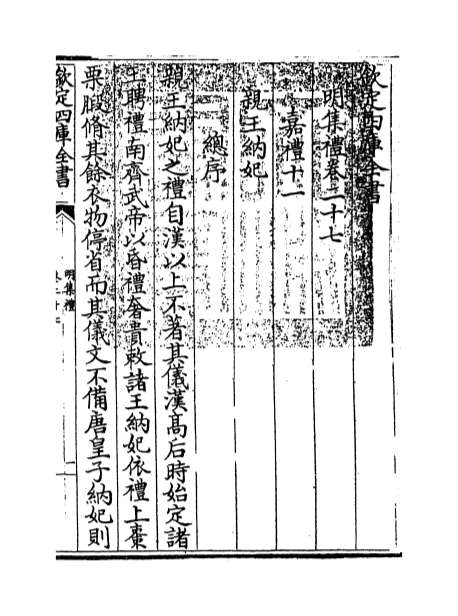 欽定四庫全書
明集禮卷二十七
嘉禮十一
親王納妃
總序
親王納妃之禮自漢以上不著其儀漢髙后時始定諸
王聘禮南齊武帝以昏禮奢貴敕諸王納妃依禮上棗
栗腶脩其餘衣物停省而其儀文不備唐皇子納妃則
欽定四庫全書
明集禮